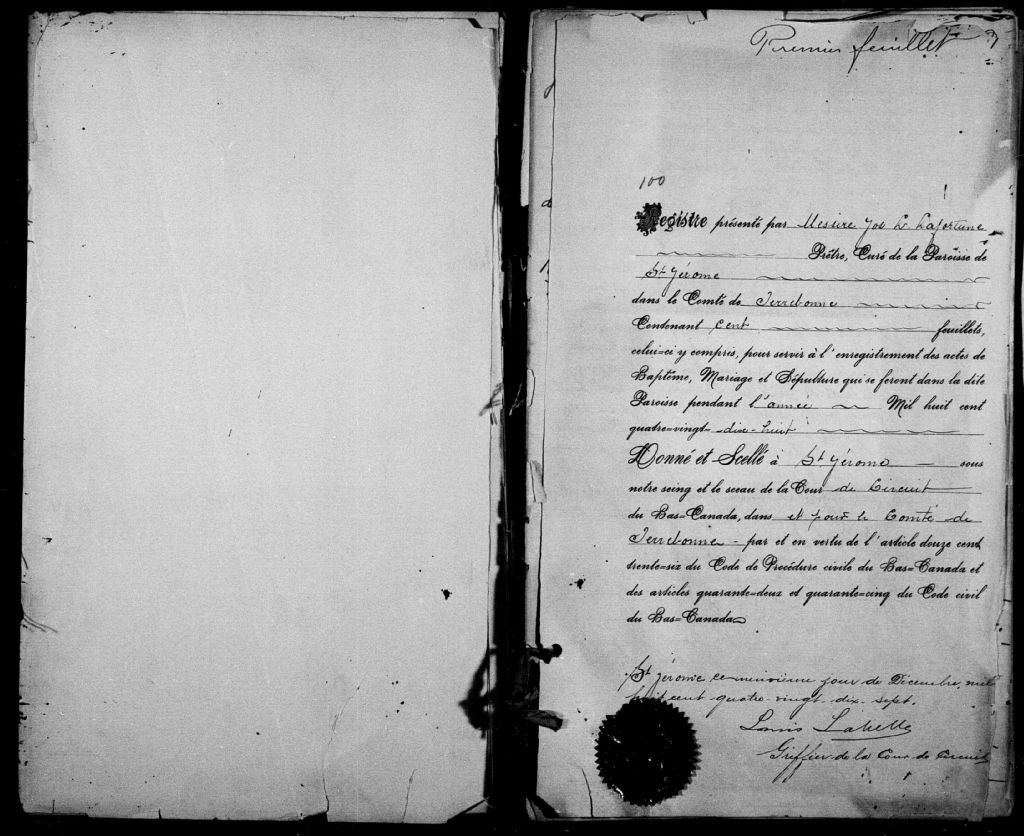 Premier feuillet
100
Registre présenté par Messire Jos L Lafortune
Prêtre, Curé de la Paroisse de
St Jérome
dans le Comté de Terrebonne
Contenant cent feuillets,
celui-ci y compris, pour servir à l'enregistrement des actes de
Baptême, Mariage et Sépulture qui se feront dans la dite
Paroisse pendant l'année Mil huit cent
quatre-vingt-dix-huit
Donné et Scellé à St Jérome sous
notre seing et le sceau de la Cour de Circuit
du Bas-Canada, dans et pour le Comté de
Terrebonne - par et en vertu de l'article douze cent
trente-six du Code de Procédure civile du Bas-Canada et
des articles quarante-deux et quarante-cinq du Code civil
du Bas-Canada
St Jérome ce neuvième jour de Décembre, mil
huit cent quatre-vingt-dix-sept.
Louis Labelle
Greffier de la Cour de Circuit